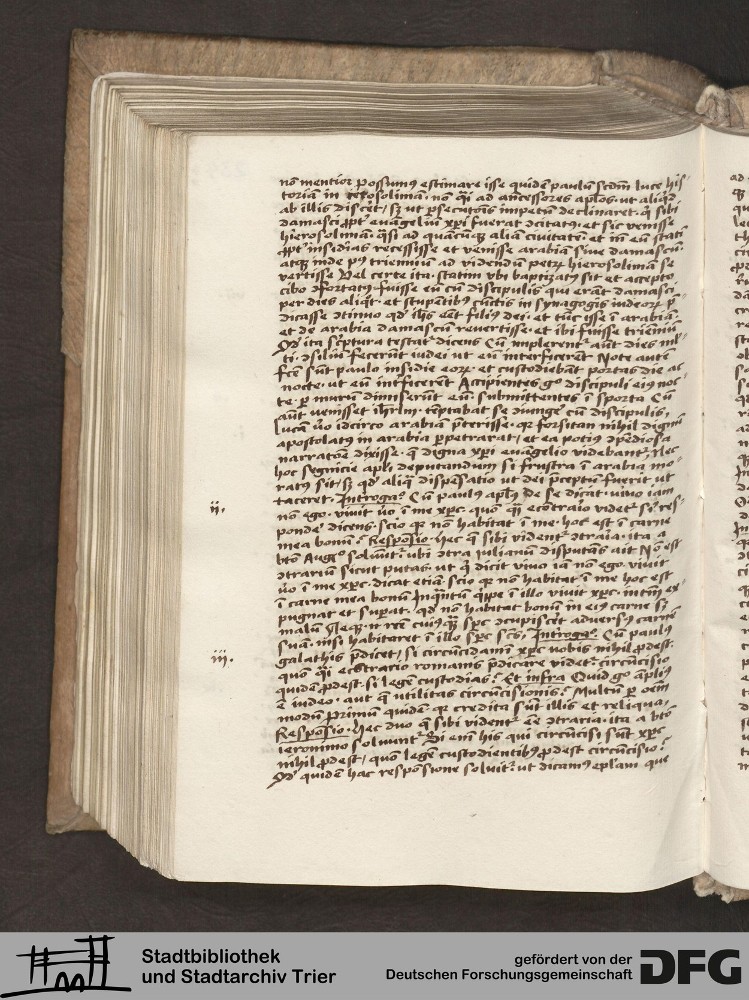 no mentior possumus estimare isse quidem paulū scdm luce his-
toriam in ierosolimā. nō q̄si ad ancessores aplos. ut aliq̄d
ab illis disceret / s; ut psecutōis impetū declinaret. q̄ sibi
damasci ppt' euāgeliū xpi fuerat
hierosolimā. q̄si ad quācūq; aliā civitatē. et in eū statī
ppt' insidias recessisse et venisse arabiā sive damascū.
atq; inde pꝰ trienniū ad videndū petrū hierosolimā se
vertisse Vel certe ita. statim ubi baptizatꝰ sit et accepto
cibo ɔfortatꝰ fuisse eū cū discipulis qui erāt damasci
per dies aliq̄t. et stupētibꝰ cūctis in synagogis iudeoꝝ p̄-
dicasse ɔtinuo qd' ihs eēt filiꝰ dei. et tūc isse ī arabiā.
et de arabia damascū revertisse. et ibi fuisse trienniū
Qd' ita sc̄ptura testat' dicens Cū implerent' aūt dies ml'-
ti. ɔsiliū fecerūt iudei ut eū interficerēt Note autē
fc̄e sūt paulo insidie eoꝝ. et custodiebāt portas die ac
nocte. ut eū int'ficerēt Accipientes g̊ discipuli eiꝰ noc-
te. p murū dimiserūt eū. submittentes ī sporta Cū
aūt venisset ihrlm. tēptabat se ɔiunge' cū discipulis,
Lucam v̊o idcirco arabia p̄terisse. qr forsitan nihil dignū
apostolatꝰ in arabia ppetrarat / et ea potiꝰ ɔpēdiosa
narratōe dixisse. q̄ digna xpi euāgelio videbant' / Nec
hoc segnicie apli deputandum si frustra ī arabia mo-
ratꝰ sit / s; qd' aliq̄ dispēsatio ut dei p̄ceptū fuerit ut
taceret. Introga° Cū paulꝰ aplꝰ de se dicat. vivo iam
ii.
nō ego. vivit v̊o ī me xpc. quō q̄si ecōtraio videt' sī res-
ponde' dicens. scio qe nō habitat ī me. hoc est ī carne
mea bonū? Responsio. Hec q̄ sibi vident' ɔtraia. ita a
bt̊o Aug° solvūt'. ubi ɔtra iulianū disputās ait Nō est
ɔtrariū sicut putas. ut q̄ dicit vivo iā nō ego. vivit
v̊o ī me xpc. dicat etiā. scio qe nō habitat ī me hoc est
ī carne mea bonū Inq̄ntū q̄ppe ī illo vivit xpc. intm̄ ex-
pugnat et supat. qd nō habitat bonū in eiꝰ carne s;
malū
suā. nisi habitaret ī illo spc sc̄s, Introga° Cū paulus
iii.
galathis p̄dicet / si circūcidamī xpc vobis nihil pdest.
quō q̄si ecōtracio romanis p̄dicare videt'. circūcisio
quidē pdest. si legē custodias? Et infra Quid g̊ āpliꝰ
ē iudeo. aut q̄ utilitas circūcisionis? Multū p oēm
modū Primū quidē. qe credita sūt illis et reliqua,
Responsio. Hec duo q̄ sibi vident' eē ɔtraria. ita a bt̊o
ieronimo solvunt' Si enī his qui circūcisi sūt xpc
nihil pdest / quō legē custodientibꝰ pdest circūcisio?
Qd' quidē hac responsione solvit'. ut dicamꝰ epl'am que
Stadtbibliothek
und Stadtarchiv Trier
gefördert von der
Deutschen Forschungsgemeinschaft
DFG